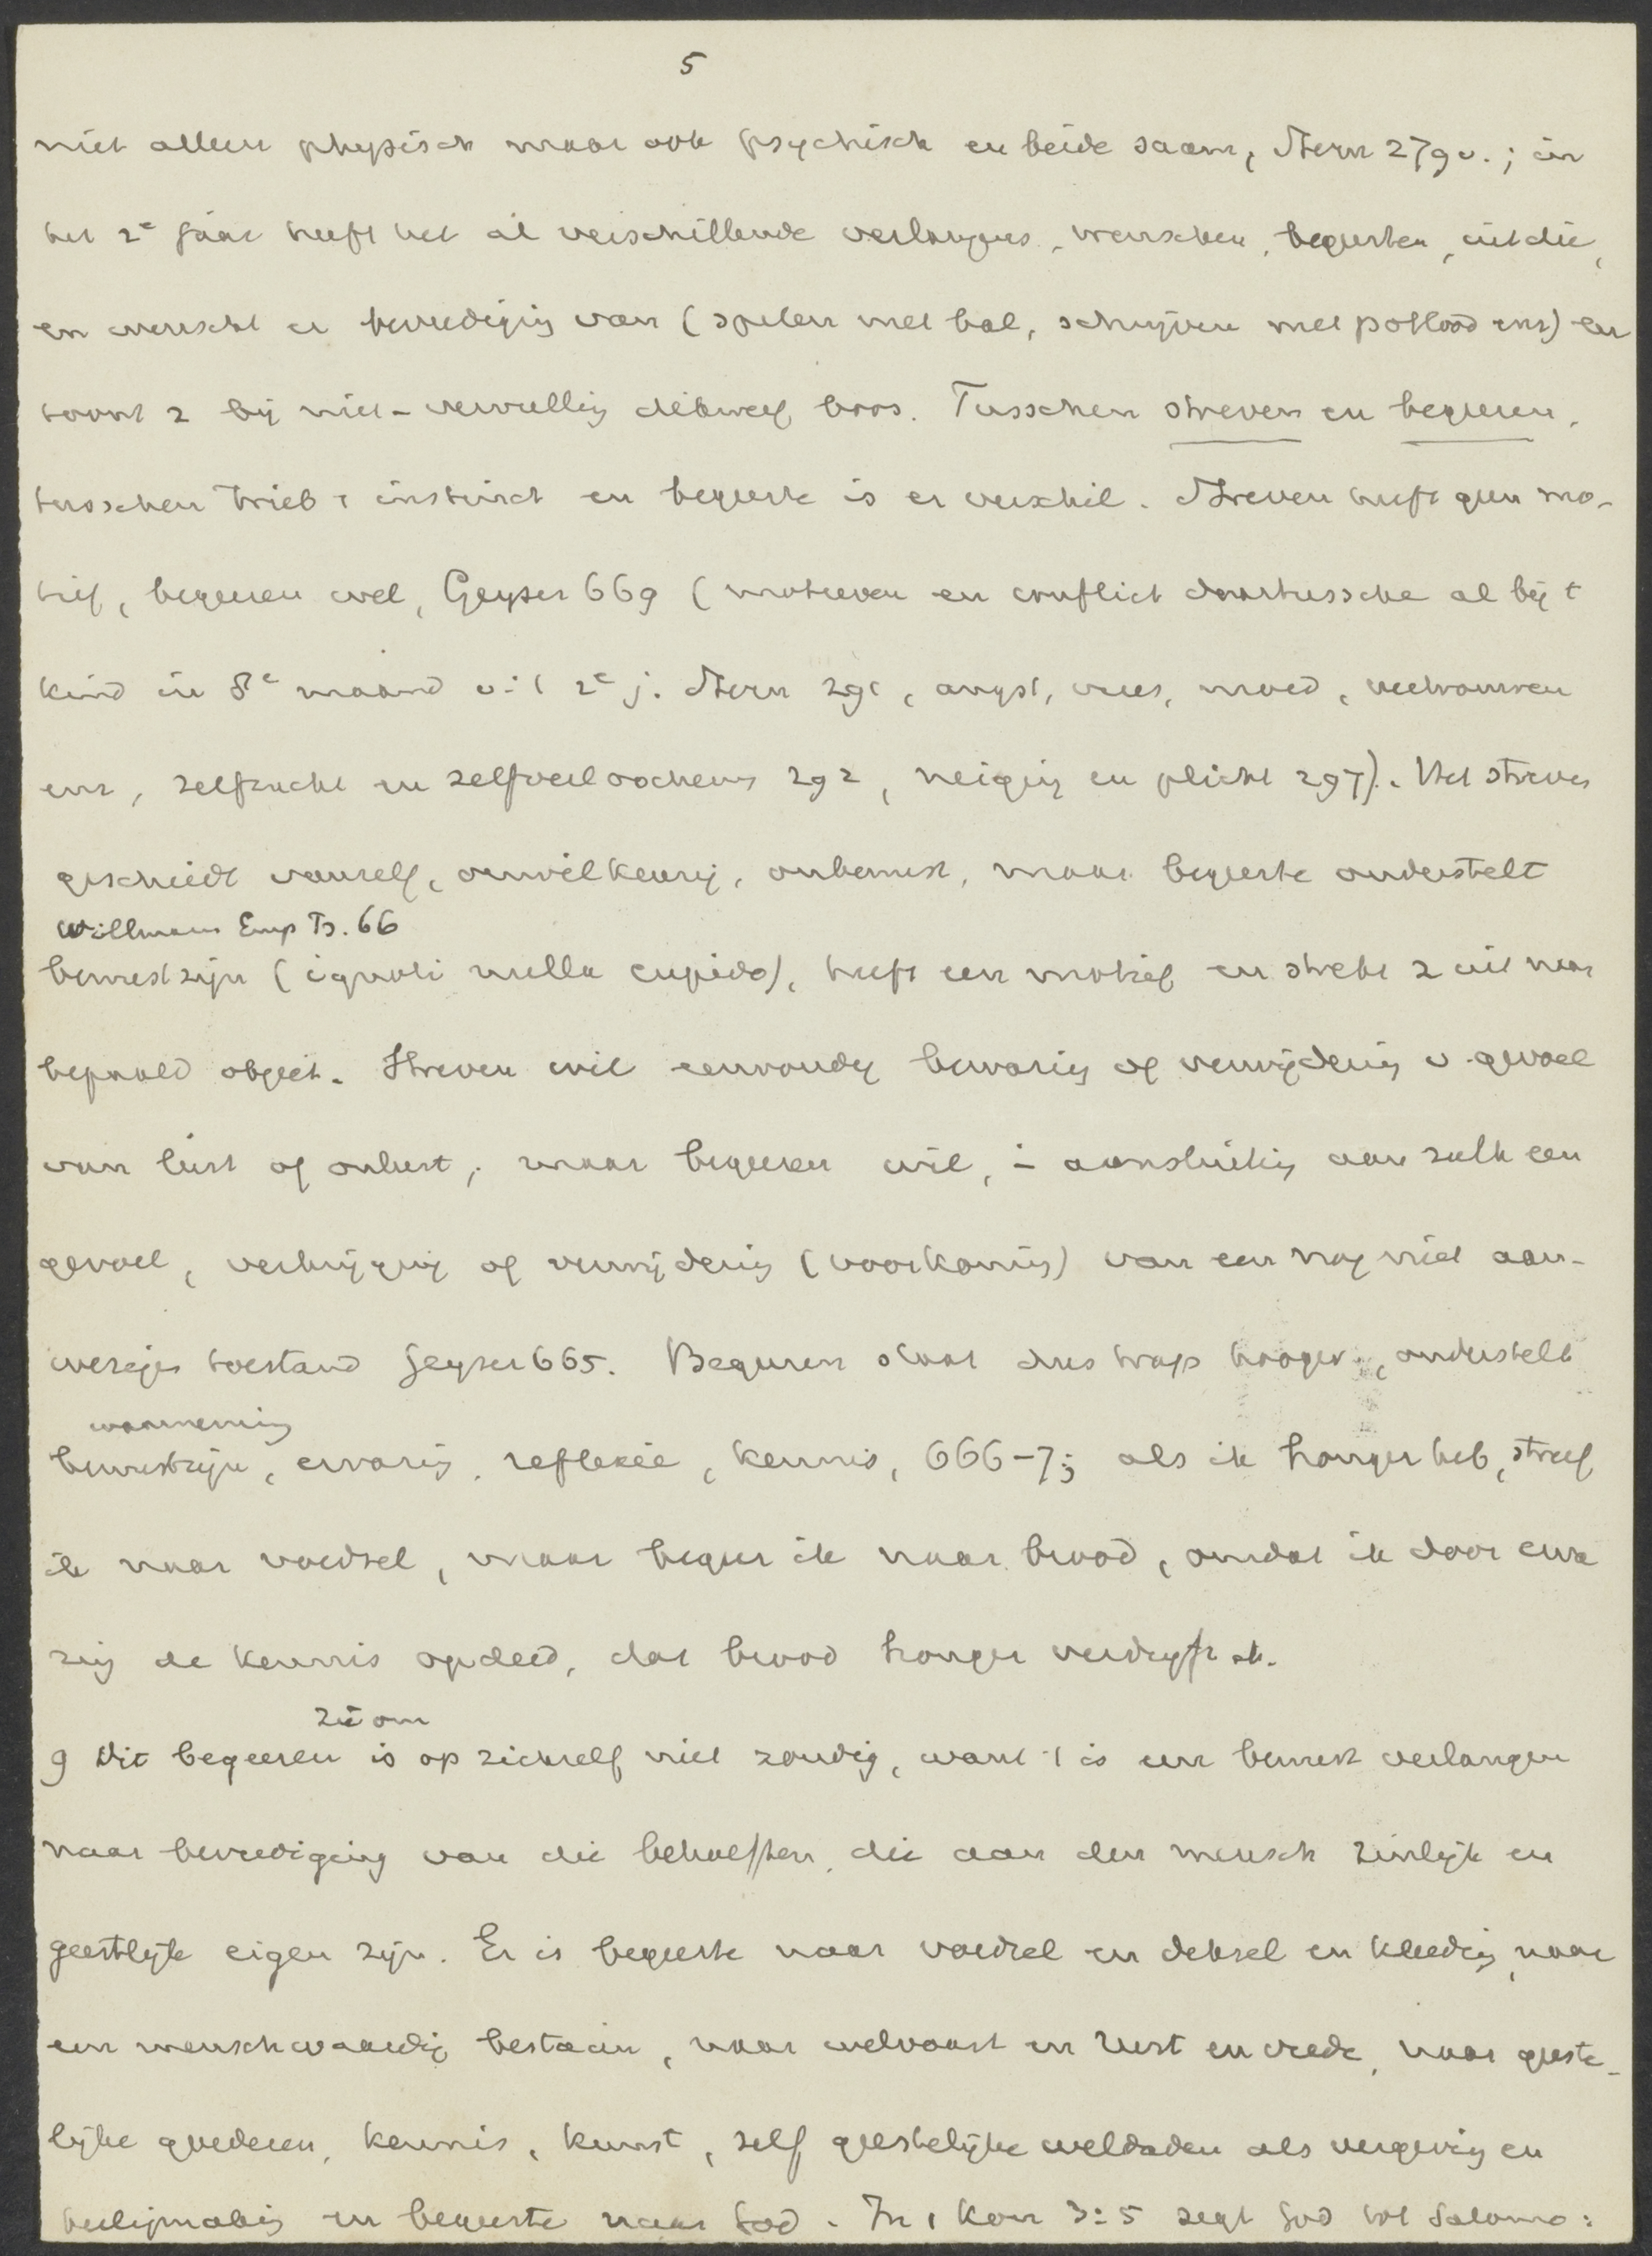 5
niet alleen physisch maar ook psychisch en beide saam, Stern 279 v.; in
het 2e jaar heeft het al verschillende verlangens, wenschen, begeerten, uit die,
en wenscht er bevrediging van (spelen met bal, schrijven met potlood enz) en
toont z bij niet-vervulling dikwerf boos. Tusschen streven en begeeren,
tusschen Trieb, instinct en begeerte is er verschil. Streven heeft geen mo-
tief, begeeren wel, Geyser 669 (motieven en conflict daartussche al bij t
kind in 8e maand v. t 2e j. Stern 291, angst, vrees, moed, vertrouwen
enz, zelfzucht en zelfverloochening 292, neiging en plicht 297). Het streven
geschiedt vanzelf, onwilkeurig, onbewust, maar begeerte onderstelt
Willmann Emp Ps. 66
bewustzijn (ignoti nulla cupido), heeft een motief en strekt z uit naar
bepaald object. Streven wil eenvoudig bewaring of verwijdering v. gevoel
van lust of onlust, maar begeeren wil, i aansluiting aan zulk een
gevoel, verkrijging of verwijdering (voorkoming) van een nog niet aan-
wezigen toestand Geyser 665. Begeeren staat dus trap hooger, onderstelt
waarneming
bewustzijn, ervaring, reflexie, kennis, 666-7; als ik honger heb, streef
ik naar voedsel, maar begeer ik naar brood, omdat ik door erva
ring de kennis opdeed, dat brood honger verdrijft
Zie om
9 Dit begeeren is op zichzelf niet zondig, want 't is een bewust verlangen
naar bevrediging van die behoeften, die aan den mensch zinlijk en
geestlijk eigen zijn. Er is begeerte naar voedsel en deksel en kleeding, naar
een menschwaardig bestaan, naar welvaart en rust en vrede, naar geeste-
lijke goederen, kennis, kunst, zelf geestelijke weldaden als vergeving en
heiligmaking en begeerte naar God. In 1 Kon 3:5 zegt God tot Salomo: